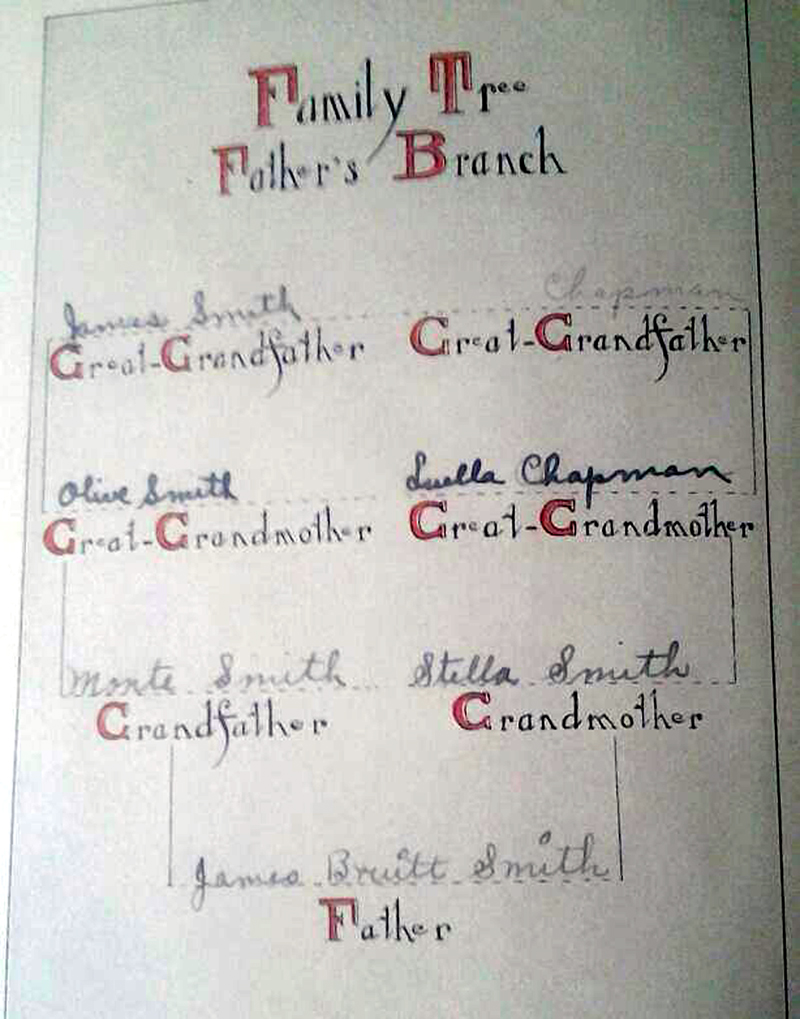 Family Tree
Father's Branch
James Smith Chapman
Great-Grandfather Great-Grandfather
Olive Smith Luella Chapman
Great-Grandmother Great-Grandmother
Monte Smith Stella Smith
Grandfather Grandmother
James Bruitt Smith
Father